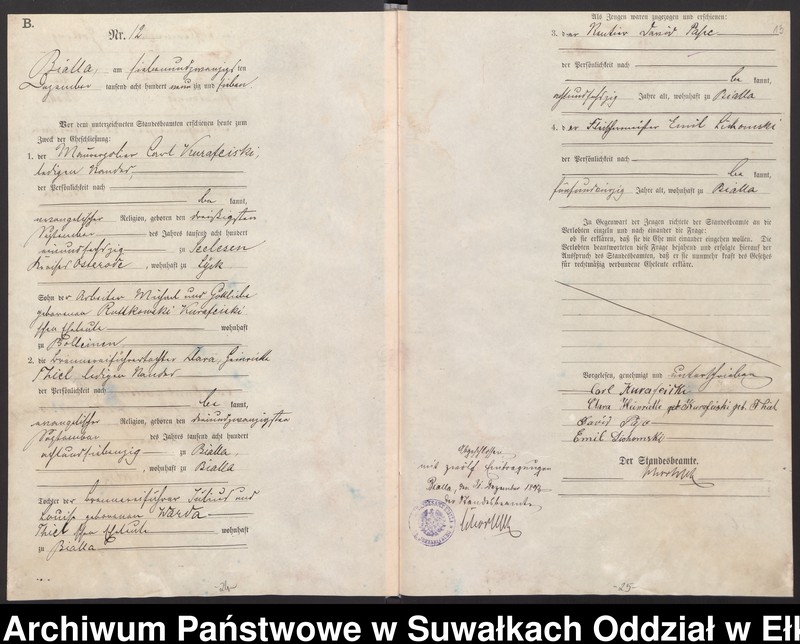 B.
Nr. 12
Bialla, am siebenundzwanzigsten
Dezember tausend acht hundert neunzig und sieben
Vor dem unterzeichneten Standesbeamten erschienen heute zum
Zweck der Eheschließung:
1. der Maurerpolier Carl Kurafeiski,
ledigen Standes,
der Persönlichkeit nach
be kannt,
evangelischer Religion, geboren den dreißigsten
September des Jahres tausend acht hundert
einundsechszig zu Seelesen
Kreises Osterode, wohnhaft zu Lyck
Sohn der Arbeiter Michael und Gottliebe
geborenen Ruttkowski Kurafeiski
schen Eheleute wohnhaft
zu
2. die Brennereiführertochter Clara, Heinriette
Thiel ledigen Standes
der Persönlichkeit nach
be kannt,
evangelischer Religion, geboren den dreiundzwanzigsten
September des Jahres tausend acht hundert
achtundsiebenzig zu Bialla,
, wohnhaft zu Bialla
Tochter der Brennereiführer Julius und
Louise geborenen Warda
Thiel schen Eheleute wohnhaft
zu Bialla
-24-
Als Zeugen waren zugezogen und erschienen:
3. der Rentier David
der Persönlichkeit nach
be kannt,
achtundsechszig Jahre alt, wohnhaft zu Bialla
4. der Fleischermeister Emil Dichomski
der Persönlichkeit nach
be kannt,
Jahre alt, wohnhaft zu Bialla
In Gegenwart der Zeugen richtete der Standesbeamte an die
Verlobten einzeln und nach einander die Frage:
ob sie erklären, daß sie die Ehe mit einander eingehen wollen. Die
Verlobten beantworteten diese Frage bejahend und erfolgte hierauf der
Ausspruch des Standesbeamten, daß er sie nunmehr kraft des Gesetzes
für rechtmäßig verbundene Eheleute erkläre.
Vorgelesen, genehmigt und unterschrieben
Carl Kurafeiski
Clara Heinriette Kurafeiski geb. Thiel
David
Emil Dichomski
Der Standesbeamte.
Abgeschlossen
mit zwölf Eintragungen
Bialla, den 31. Dezember 1897
Der Standesbeamte
-25-
Archiwum Państwowe w Suwałkach Oddział w Eł